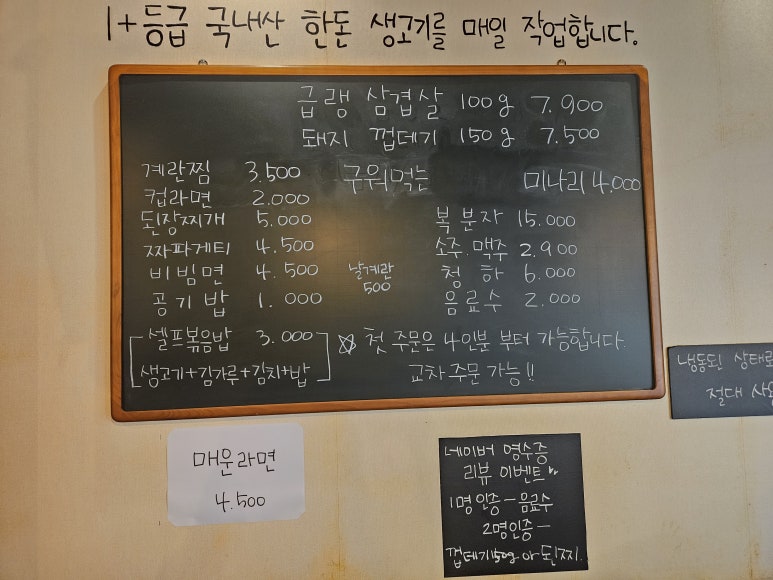 1+등급 국내산 한돈 생고기를 매일 작업합니다.
급랭 삼겹살 100g 7.900
돼지 껍데기 150g 7.500
계란찜 3.500
구워먹는 미나리 4.000
컵라면 2.000
된장찌개 5.000
복분자 15.000
짜파게티 4.500
소주.맥주 2.900
비빔면 4.500
날계란
500
청하 6.000
공기밥 1.000
음료수 2.000
셀프볶음밥 3.000
생고기+김가루+김치+밥
☆ 첫 주문은 4인분 부터 가능합니다.
교차주문 가능!!
냉동된 상태로
절대 사
매운라면
4.500
네이버 영수증
리뷰 이벤트
1명 인증 - 음료수
2명 인증 -
껍데기150g or 된찌.